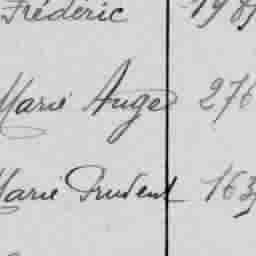 Frédéric
Marie Ange 276
Marie Prudent 163